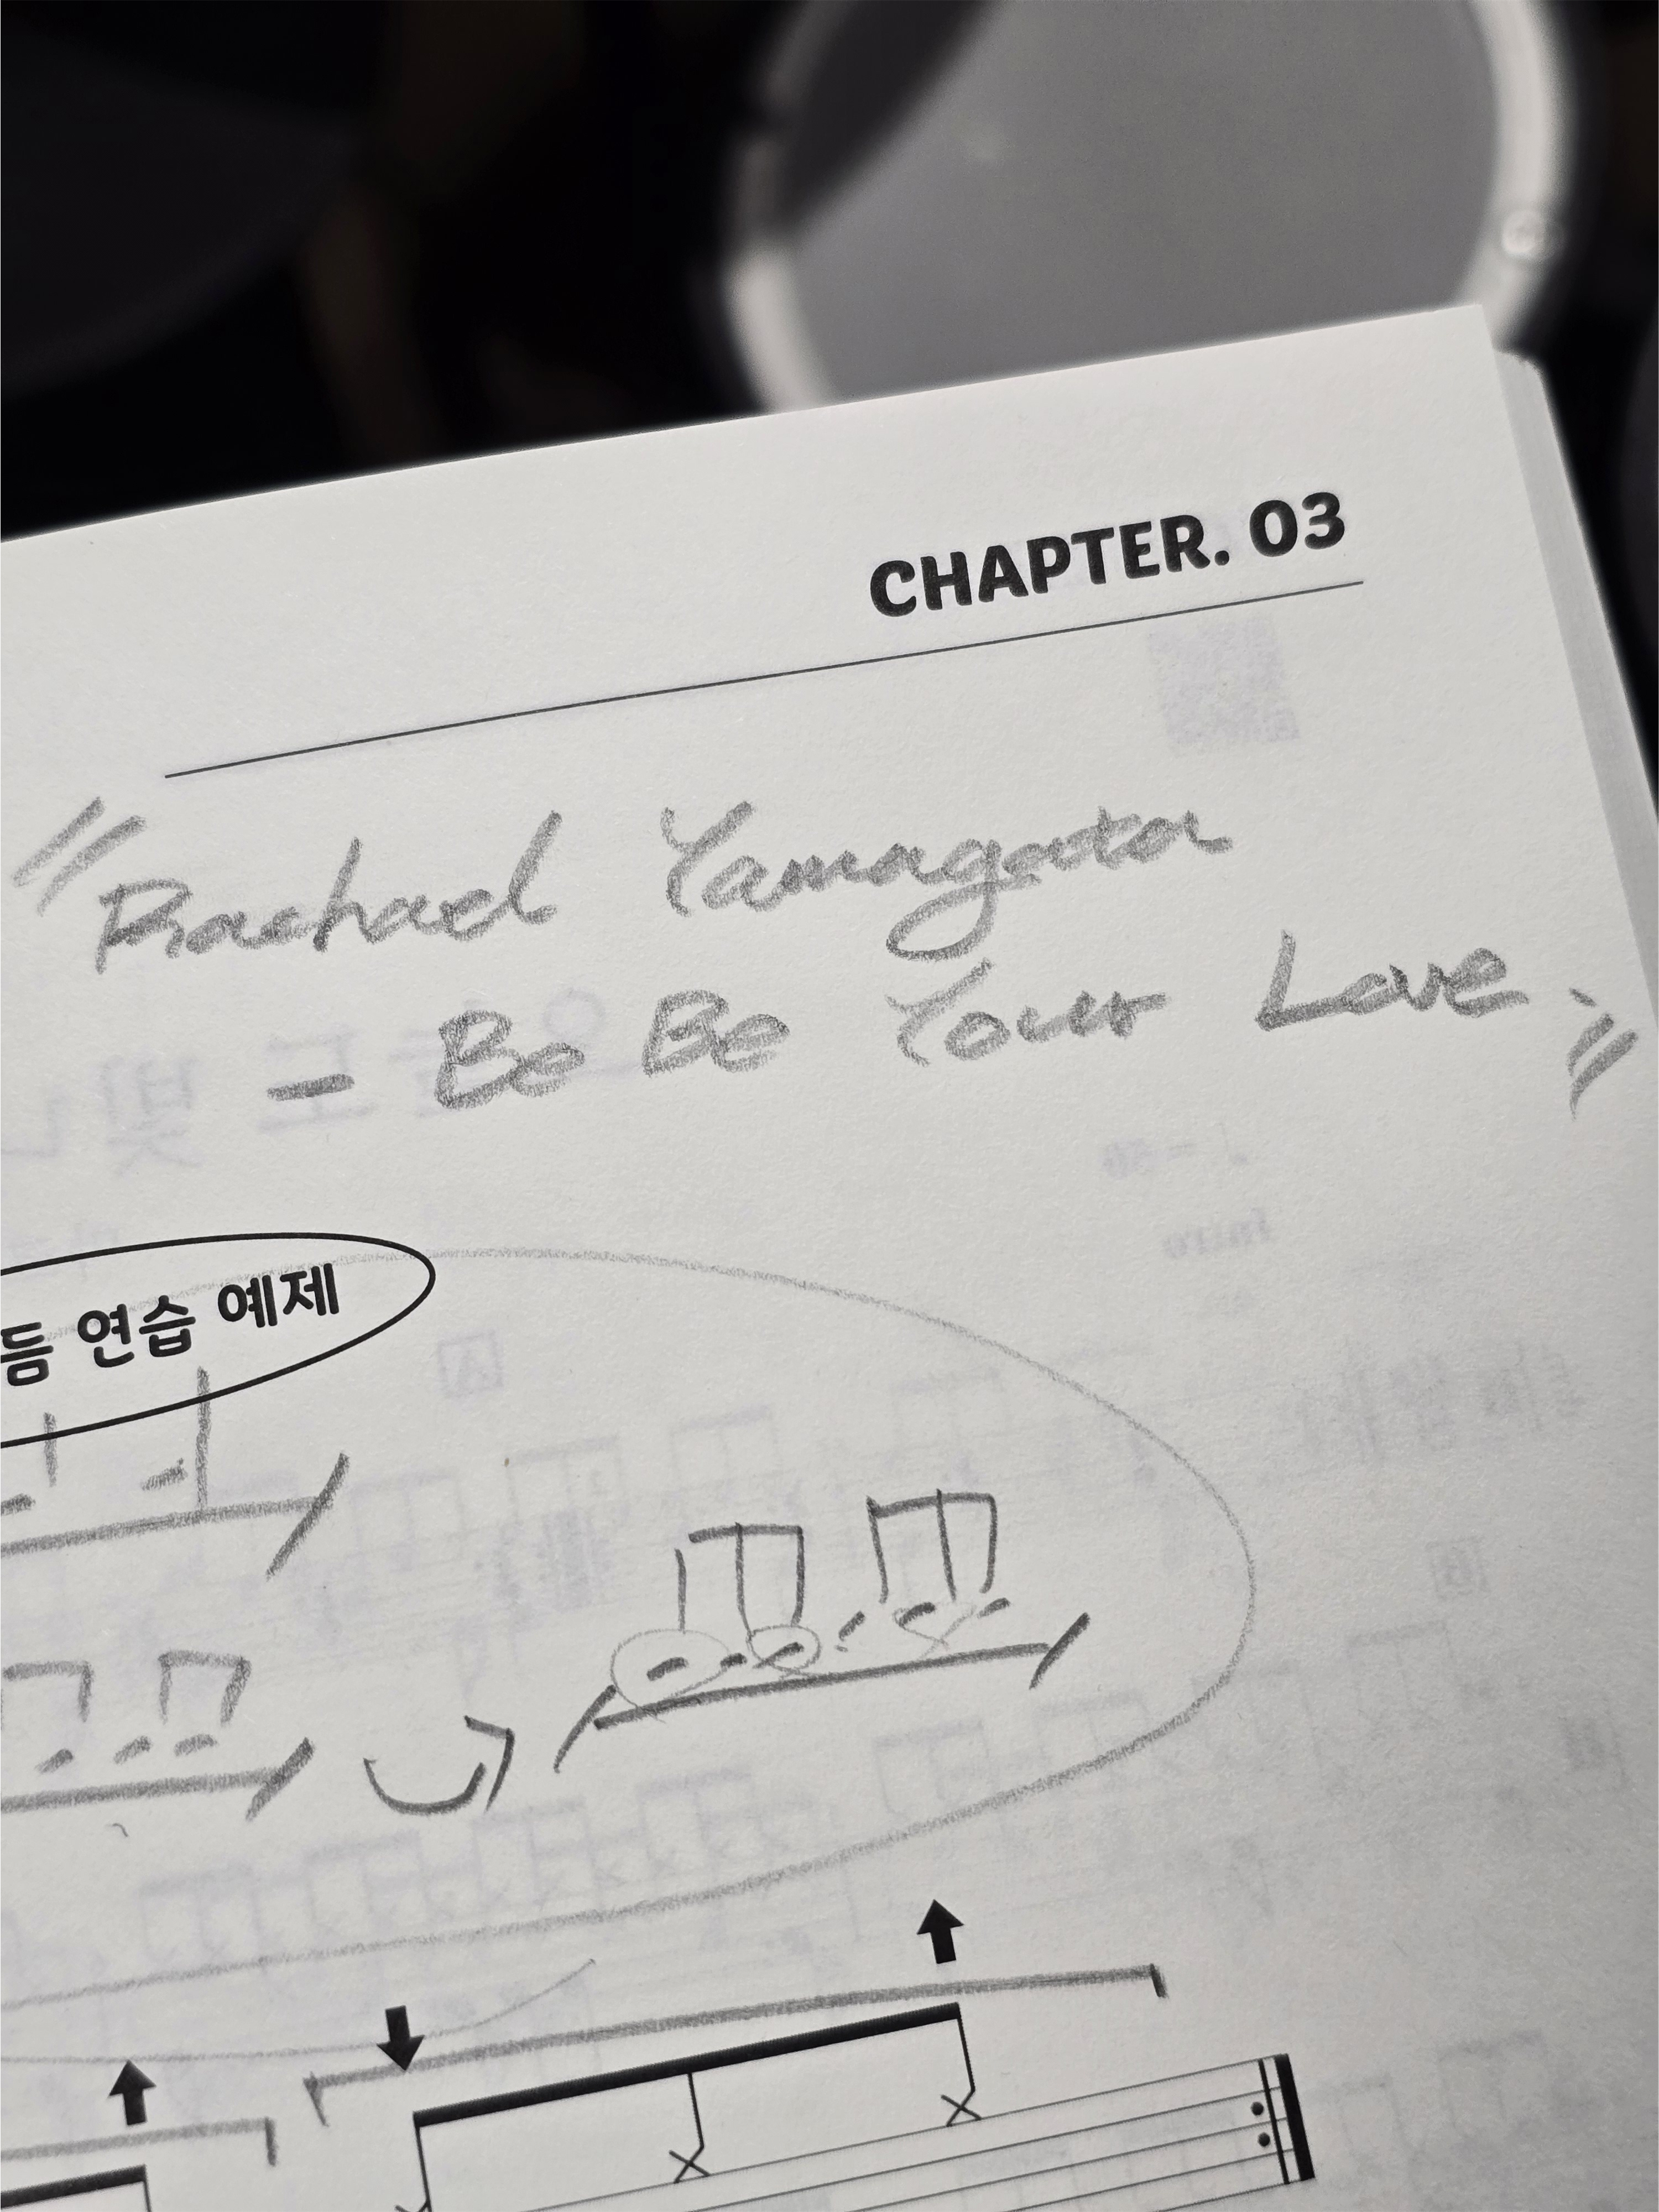 CHAPTER. 03
"Rachael Yamagata
- Be Be Your Love."
듬 연습 예제